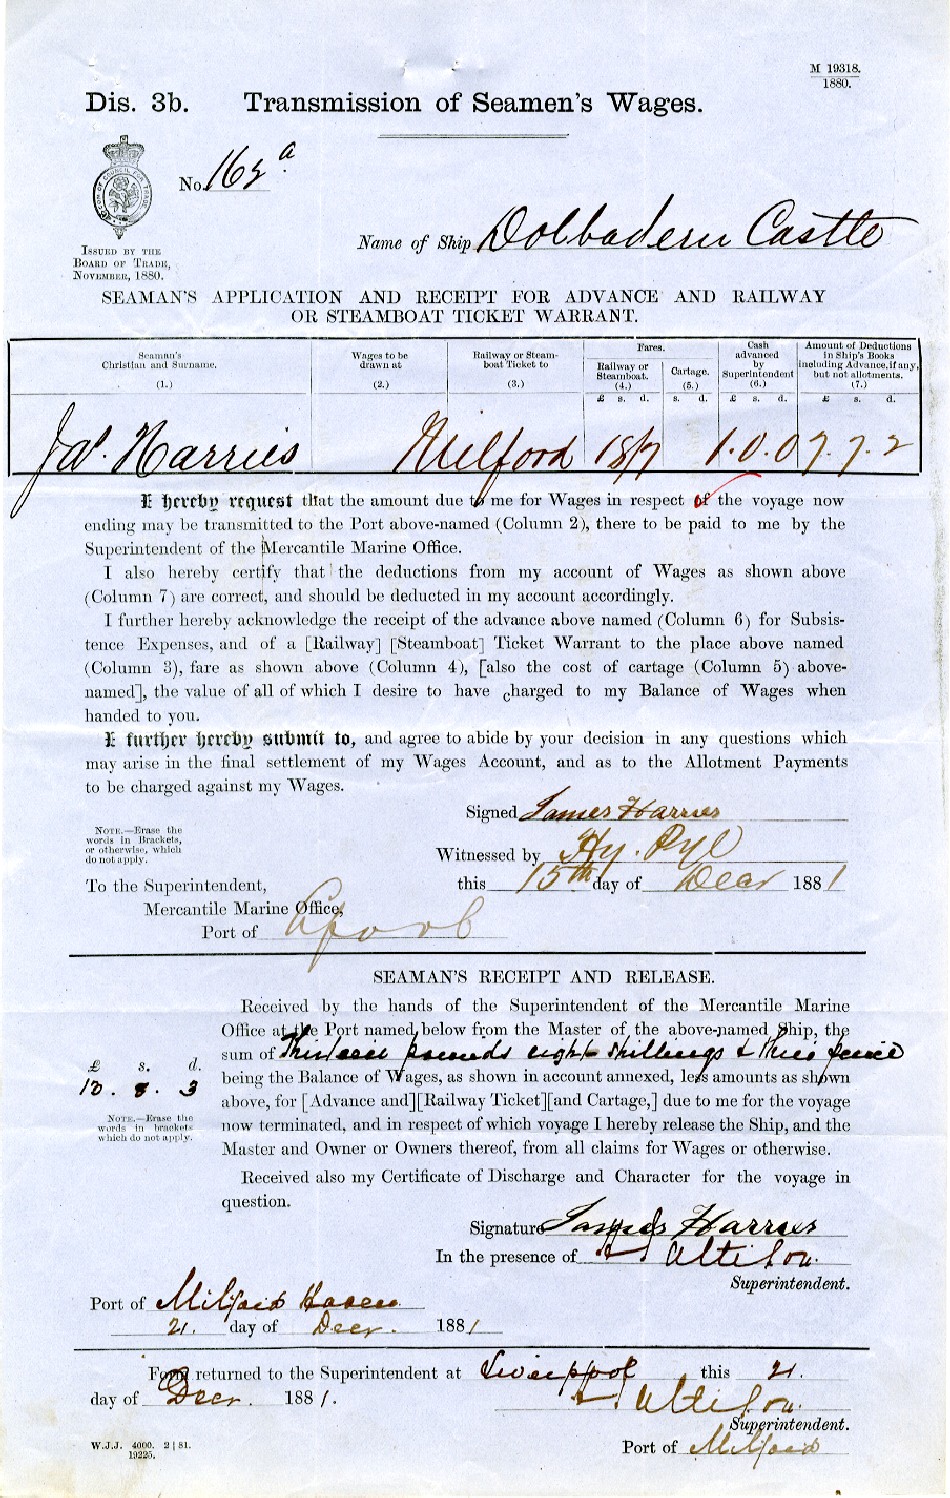 M 19318.
1880.
Dis. 3b. Transmission of Seamen's Wages.
No. 163 a
Name of Ship Dolbadern Castle
ISSUED BY THE
BOARD OF TRADE,
NOVEMBER, 1880.
SEAMAN'S APPLICATION AND RECEIPT FOR ADVANCE AND RAILWAY
OR STEAMBOAT TICKET WARRANT.
Seaman's Christian and Surname. (1.)
Wages to be drawn at (2.)
Railway or Steam-boat Ticket to (3.)
Fares.
Railway or Steamboat. (4.)
Cartage. (5.)
Cash advanced by Superintendent (6.)
Amount of Deductions in Ship's Books including Advance, if any, but not allotments. (7.)
£ s. d. s. d. £ s. d. £ s. d.
Jas. Harries Milford 18/7 1.0.0 7.7.2
I hereby request that the amount due to me for Wages in respect of the voyage now
ending may be transmitted to the Port above-named (Column 2), there to be paid to me by the
Superintendent of the Mercantile Marine Office.
I also hereby certify that the deductions from my account of Wages as shown above
(Column 7) are correct, and should be deducted in my account accordingly.
I further hereby acknowledge the receipt of the advance above named (Column 6) for Subsis-
tence Expenses, and of a [Railway] [Steamboat] Ticket Warrant to the place above named
(Column 3), fare as shown above (Column 4), [also the cost of cartage (Column 5) above-
named], the value of all of which I desire to have charged to my Balance of Wages when
handed to you.
I further hereby submit to, and agree to abide by your decision in any questions which
may arise in the final settlement of my Wages Account, and as to the Allotment Payments
to be charged against my Wages.
Signed James Harries
NOTE.—Erase the
words in Brackets,
or otherwise, which
do not apply.
Witnessed by Hy. Pyl
To the Superintendent, this 15th day of Decr 1881
Mercantile Marine Office,
Port of Lpool
SEAMAN'S RECEIPT AND RELEASE.
Received by the hands of the Superintendent of the Mercantile Marine
Office at the Port named below from the Master of the above-named Ship, the
sum of Thirteen pounds eight shillings & three pence
£ s. d.
13. 8. 3
being the Balance of Wages, as shown in account annexed, less amounts as shown
above, for [Advance and][Railway Ticket][and Cartage,] due to me for the voyage
now terminated, and in respect of which voyage I hereby release the Ship, and the
Master and Owner or Owners thereof, from all claims for Wages or otherwise.
NOTE.—Erase the
words in brackets
which do not apply.
Received also my Certificate of Discharge and Character for the voyage in
question.
Signature James Harries
In the presence of
Superintendent.
Port of Milford Haven
21. day of Decr. 1881
Form returned to the Superintendent at Liverpool this 21.
day of Decr. 1881.
Superintendent.
Port of Milford
W.J.J. 4000. 2|81.
19225.